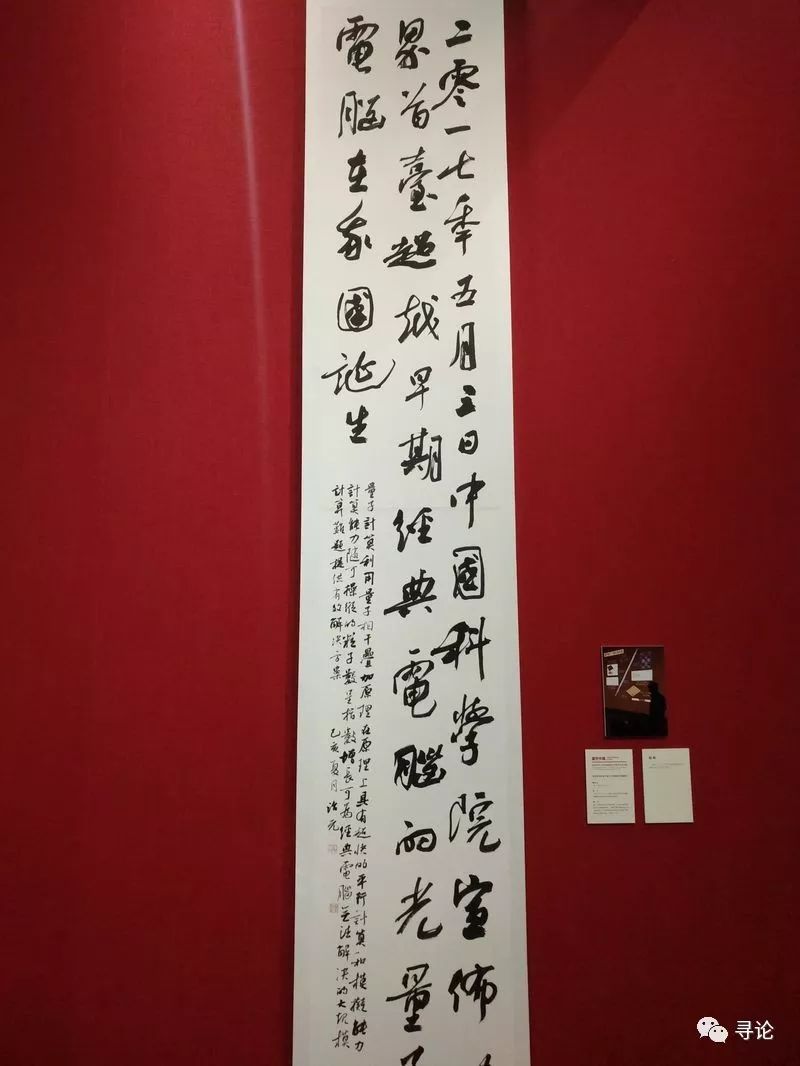 二零一七年五月三日中國科學院宣佈
界首臺超越早期經典電腦的光量子
電腦在我國誕生
量子計算利用量子相干疊加原理在原理上具有超快的平行計算和模擬能力
計算能力隨可操縱的粒子數呈指數增長可為經典電腦無法解決的大規模
計算難題提供有效解決方案
己亥夏月治元
寻论